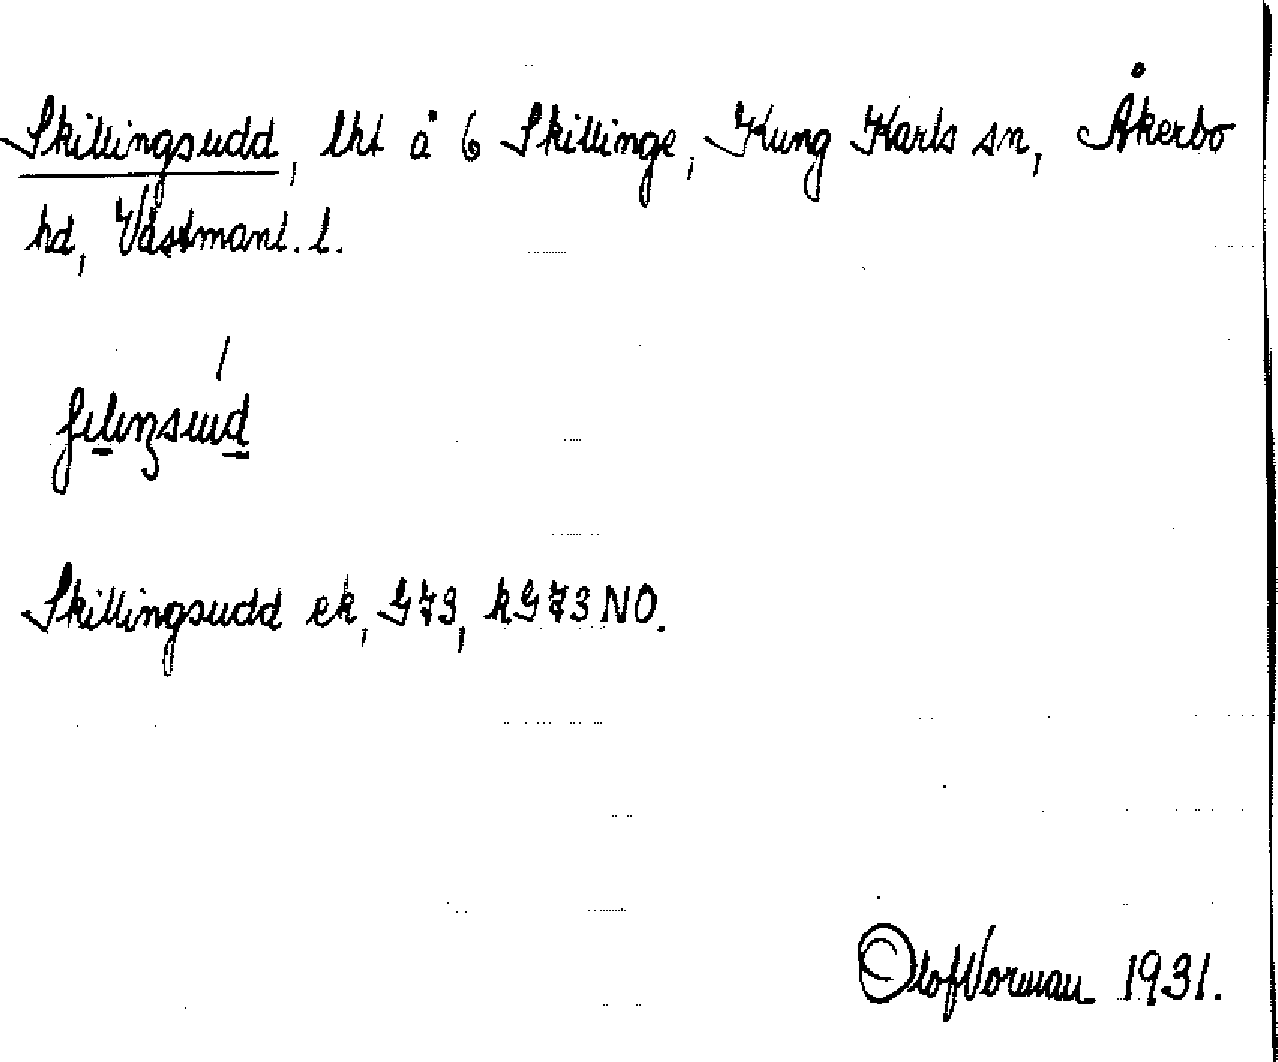 Skillingsudd, lht å 6 Skillinge, Kung Karls sn, Åkerbo
hd, Västmanl. l.
Skillingsudd ek, G73, kG73NO.
Olof Vorman 1931.